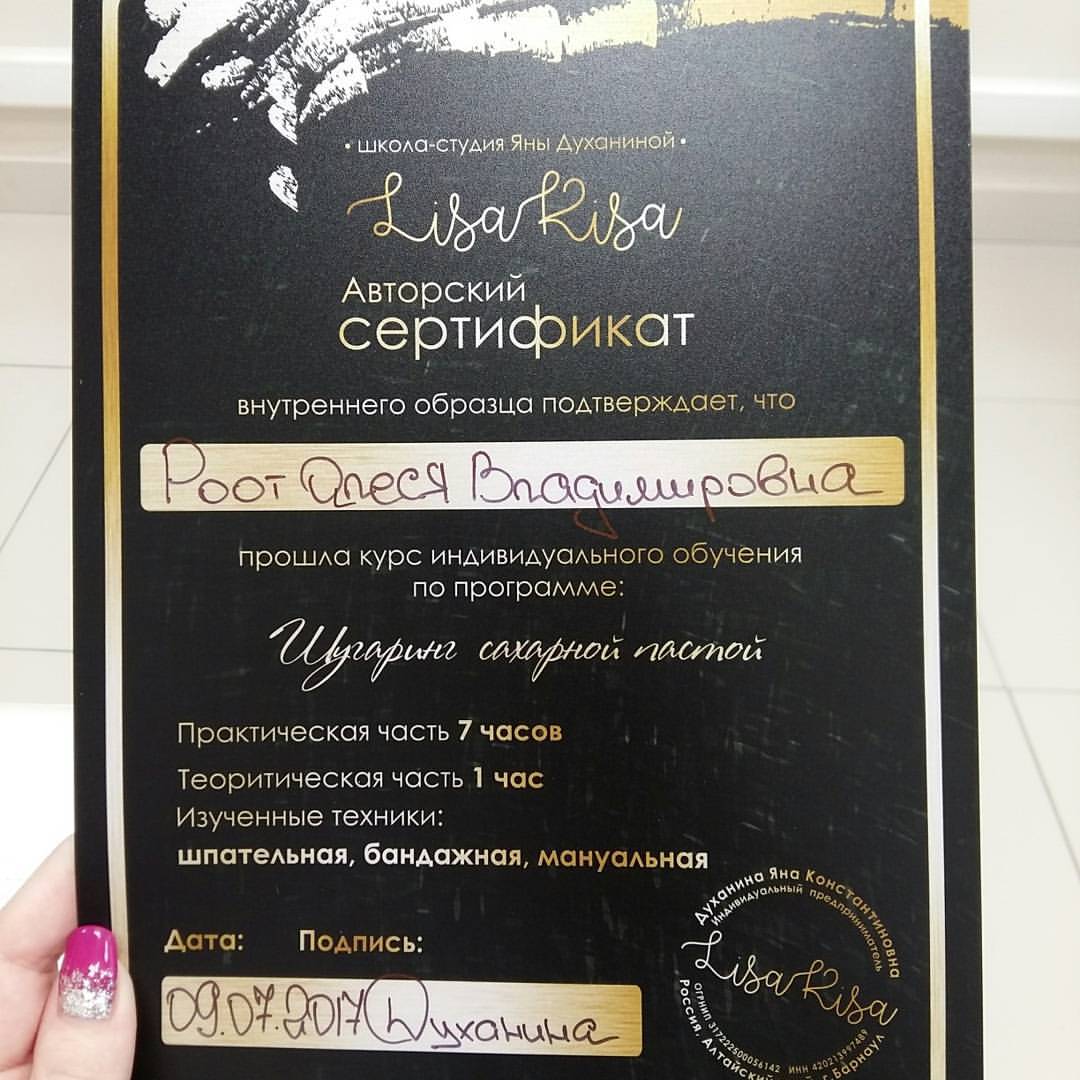 • школа-студия Яны Духаниной •
Lisa Risa
Авторский
сертификат
внутреннего образца подтверждает, что
Роот Олеся Владимировна
прошла курс индивидуального обучения
по программе:
Шугаринг сахарной пастой
Практическая часть 7 часов
Теоритическая часть 1 час
Изученные техники:
шпательная, бандажная, мануальная
Дата: Подпись:
09.07.2017 Духанина
Духанина Яна Константиновна
Индивидуальный предприниматель
Lisa Risa
ОГРНИП 317222500056142 ИНН 420213997489
Россия, Алтайский г. Барнаул